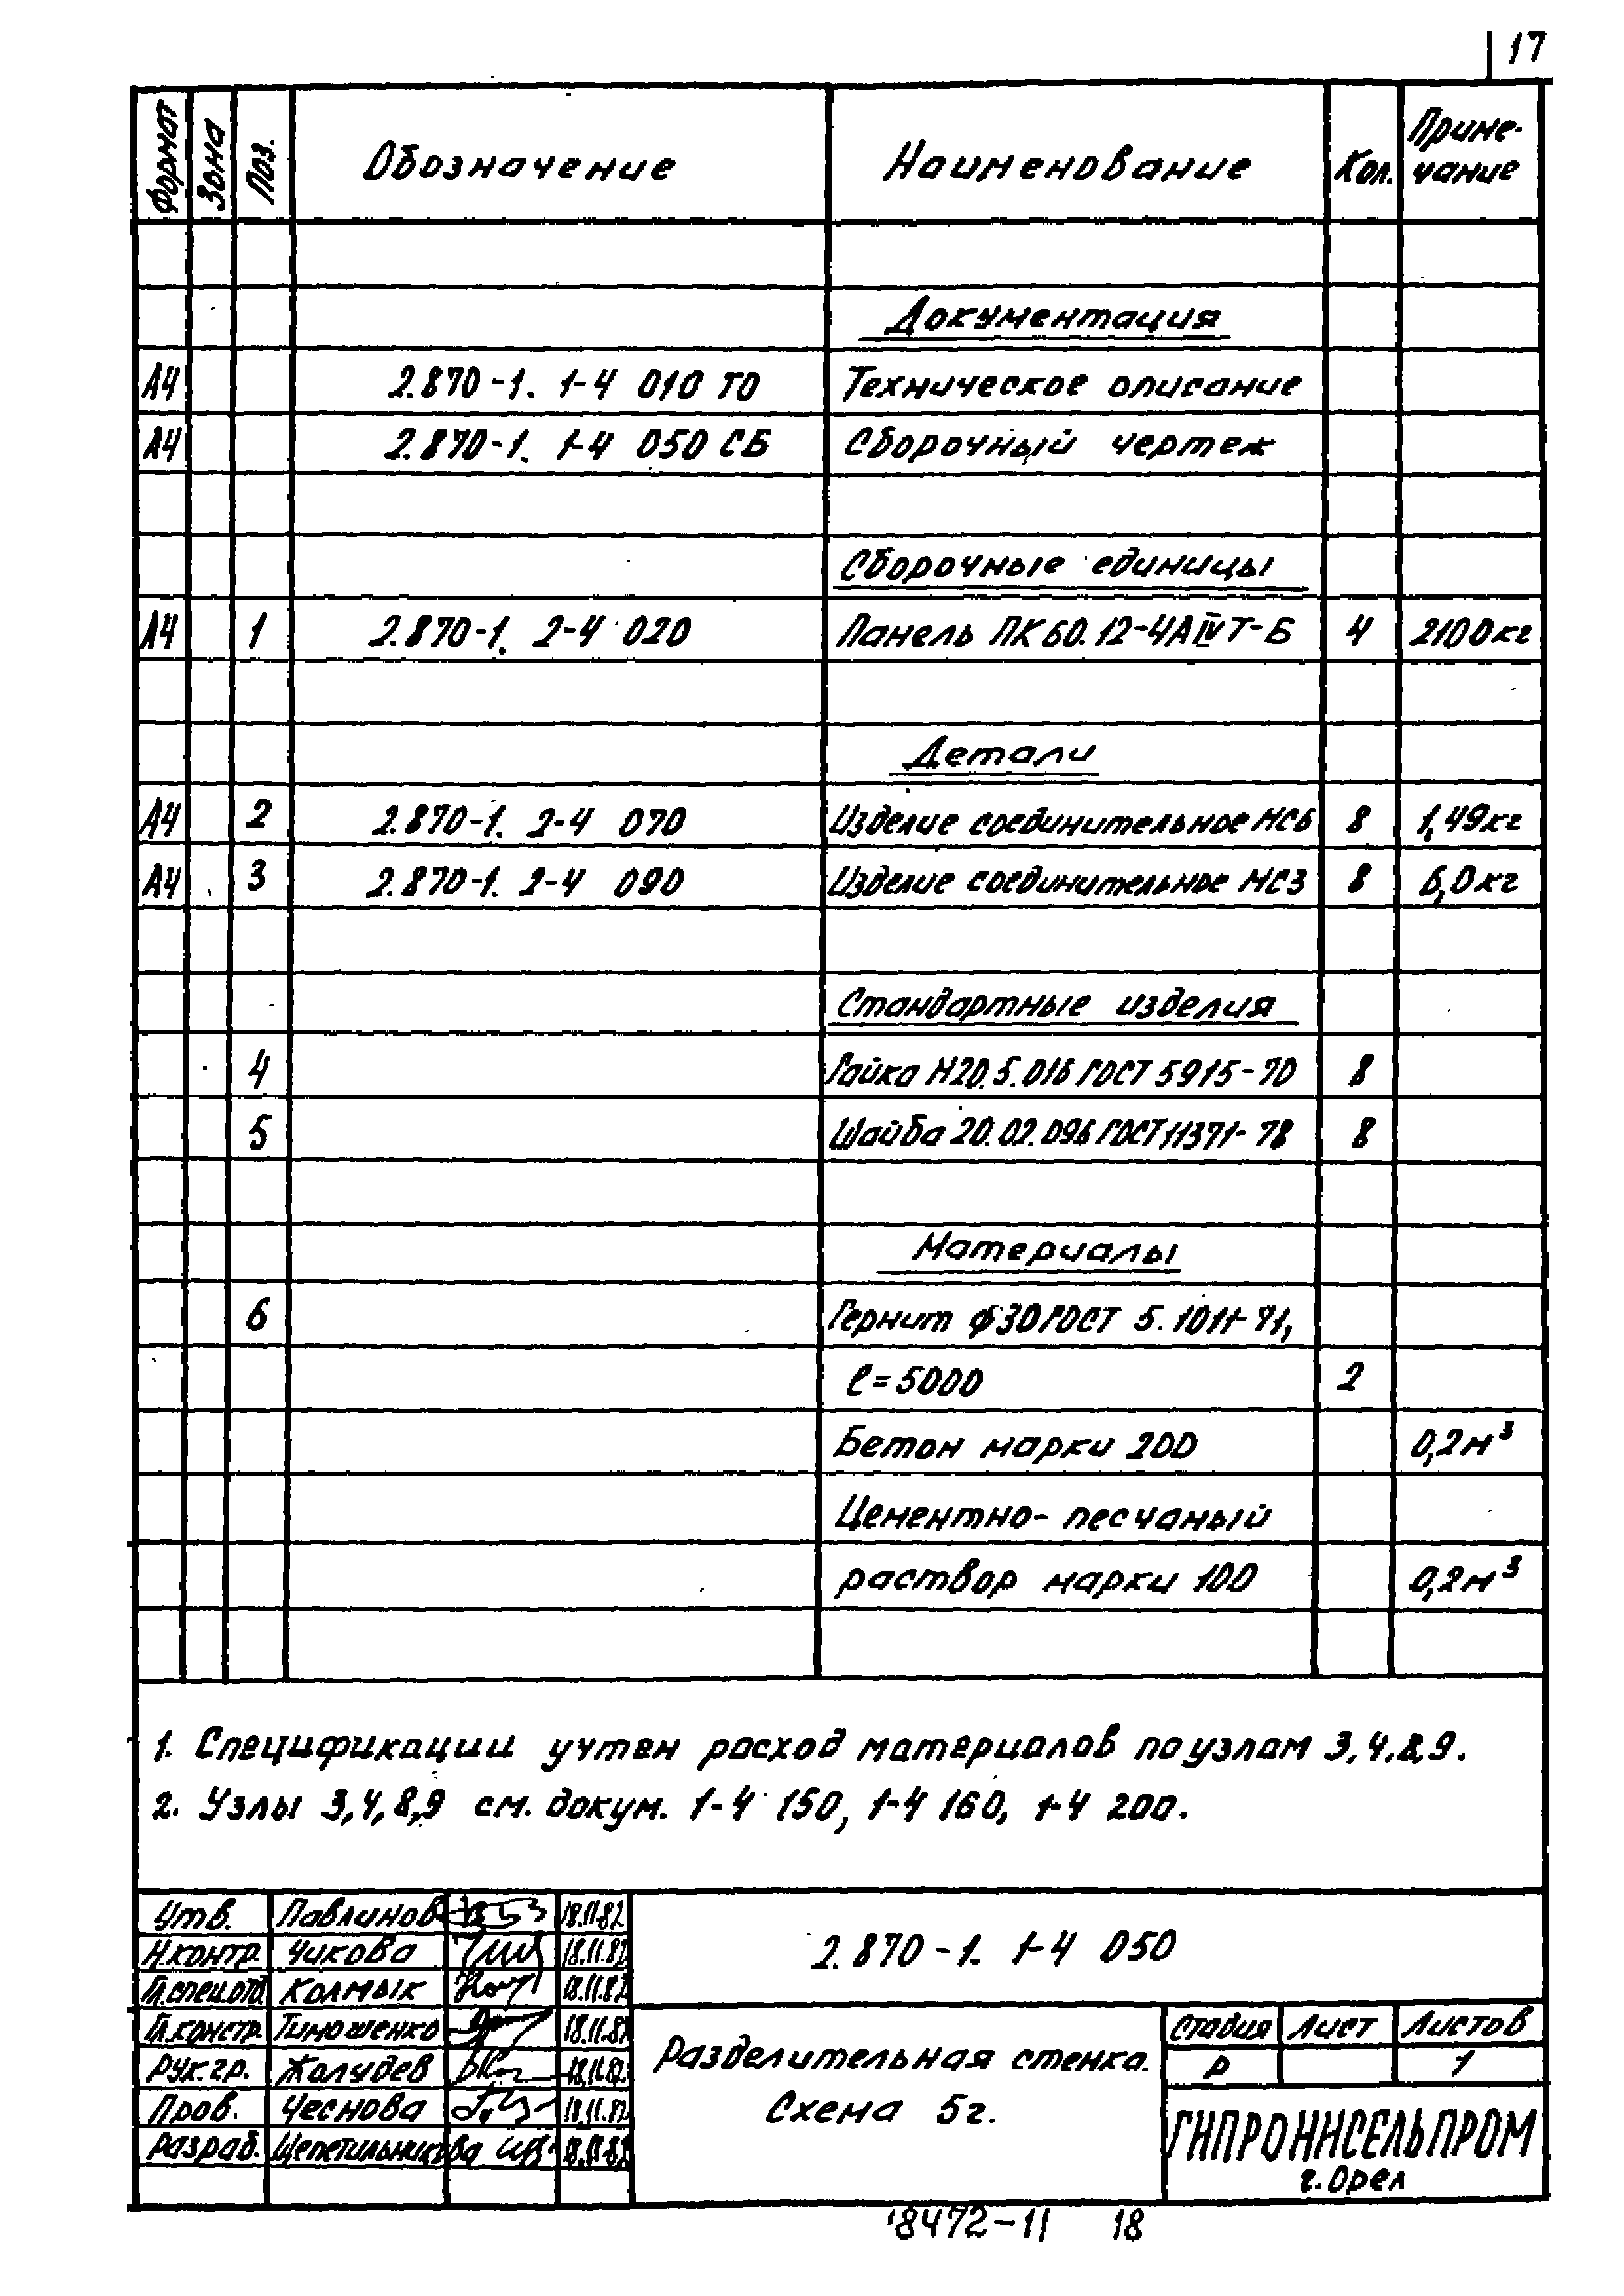 17
Формат Зона Поз. Обозначение Наименование Кол. Приме-чание
Документация
А4 2.870-1. 1-4 010 ТО Техническое описание
А4 2.870-1. 1-4 050 СБ Сборочный чертеж
Сборочные единицы
А4 1 2.870-1. 2-4 020 Панель ПК 60.12-4АIVТ-Б 4 2100кг
Детали
А4 2 2.870-1. 2-4 070 Изделие соединительное МС6 8 1,49кг
А4 3 2.870-1. 2-4 090 Изделие соединительное МС3 8 6,0кг
Стандартные изделия
4 Гайка М20.5.016 ГОСТ 5915-70 8
5 Шайба 20.02.096 ГОСТ 11371-78 8
Материалы
6 Гернит ф30 ГОСТ 5.1011-71,
ℓ=5000 2
Бетон марки 200 0,2м³
Цементно-песчаный
раствор марки 100 0,2м³
1. Спецификации учтен расход материалов по узлам 3,4,8,9.
2. Узлы 3,4,8,9 см. докум. 1-4 150, 1-4 160, 1-4 200.
Утв. Павлинов 18.11.82
Н.контр. Чикова 18.11.82
Гл.спец.отд. Колмык 18.11.82
Гл.констр. Тимошенко 18.11.82
Рук.гр. Жолудев 18.11.82
Пров. Чеснова 18.11.82
Разраб. Щепетильникова 18.11.82
2.870-1. 1-4 050
Разделительная стенка.
Схема 5г.
Стадия Лист Листов
Р 1
ГИПРОНИСЕЛЬПРОМ
г.Орел
18472-11 18